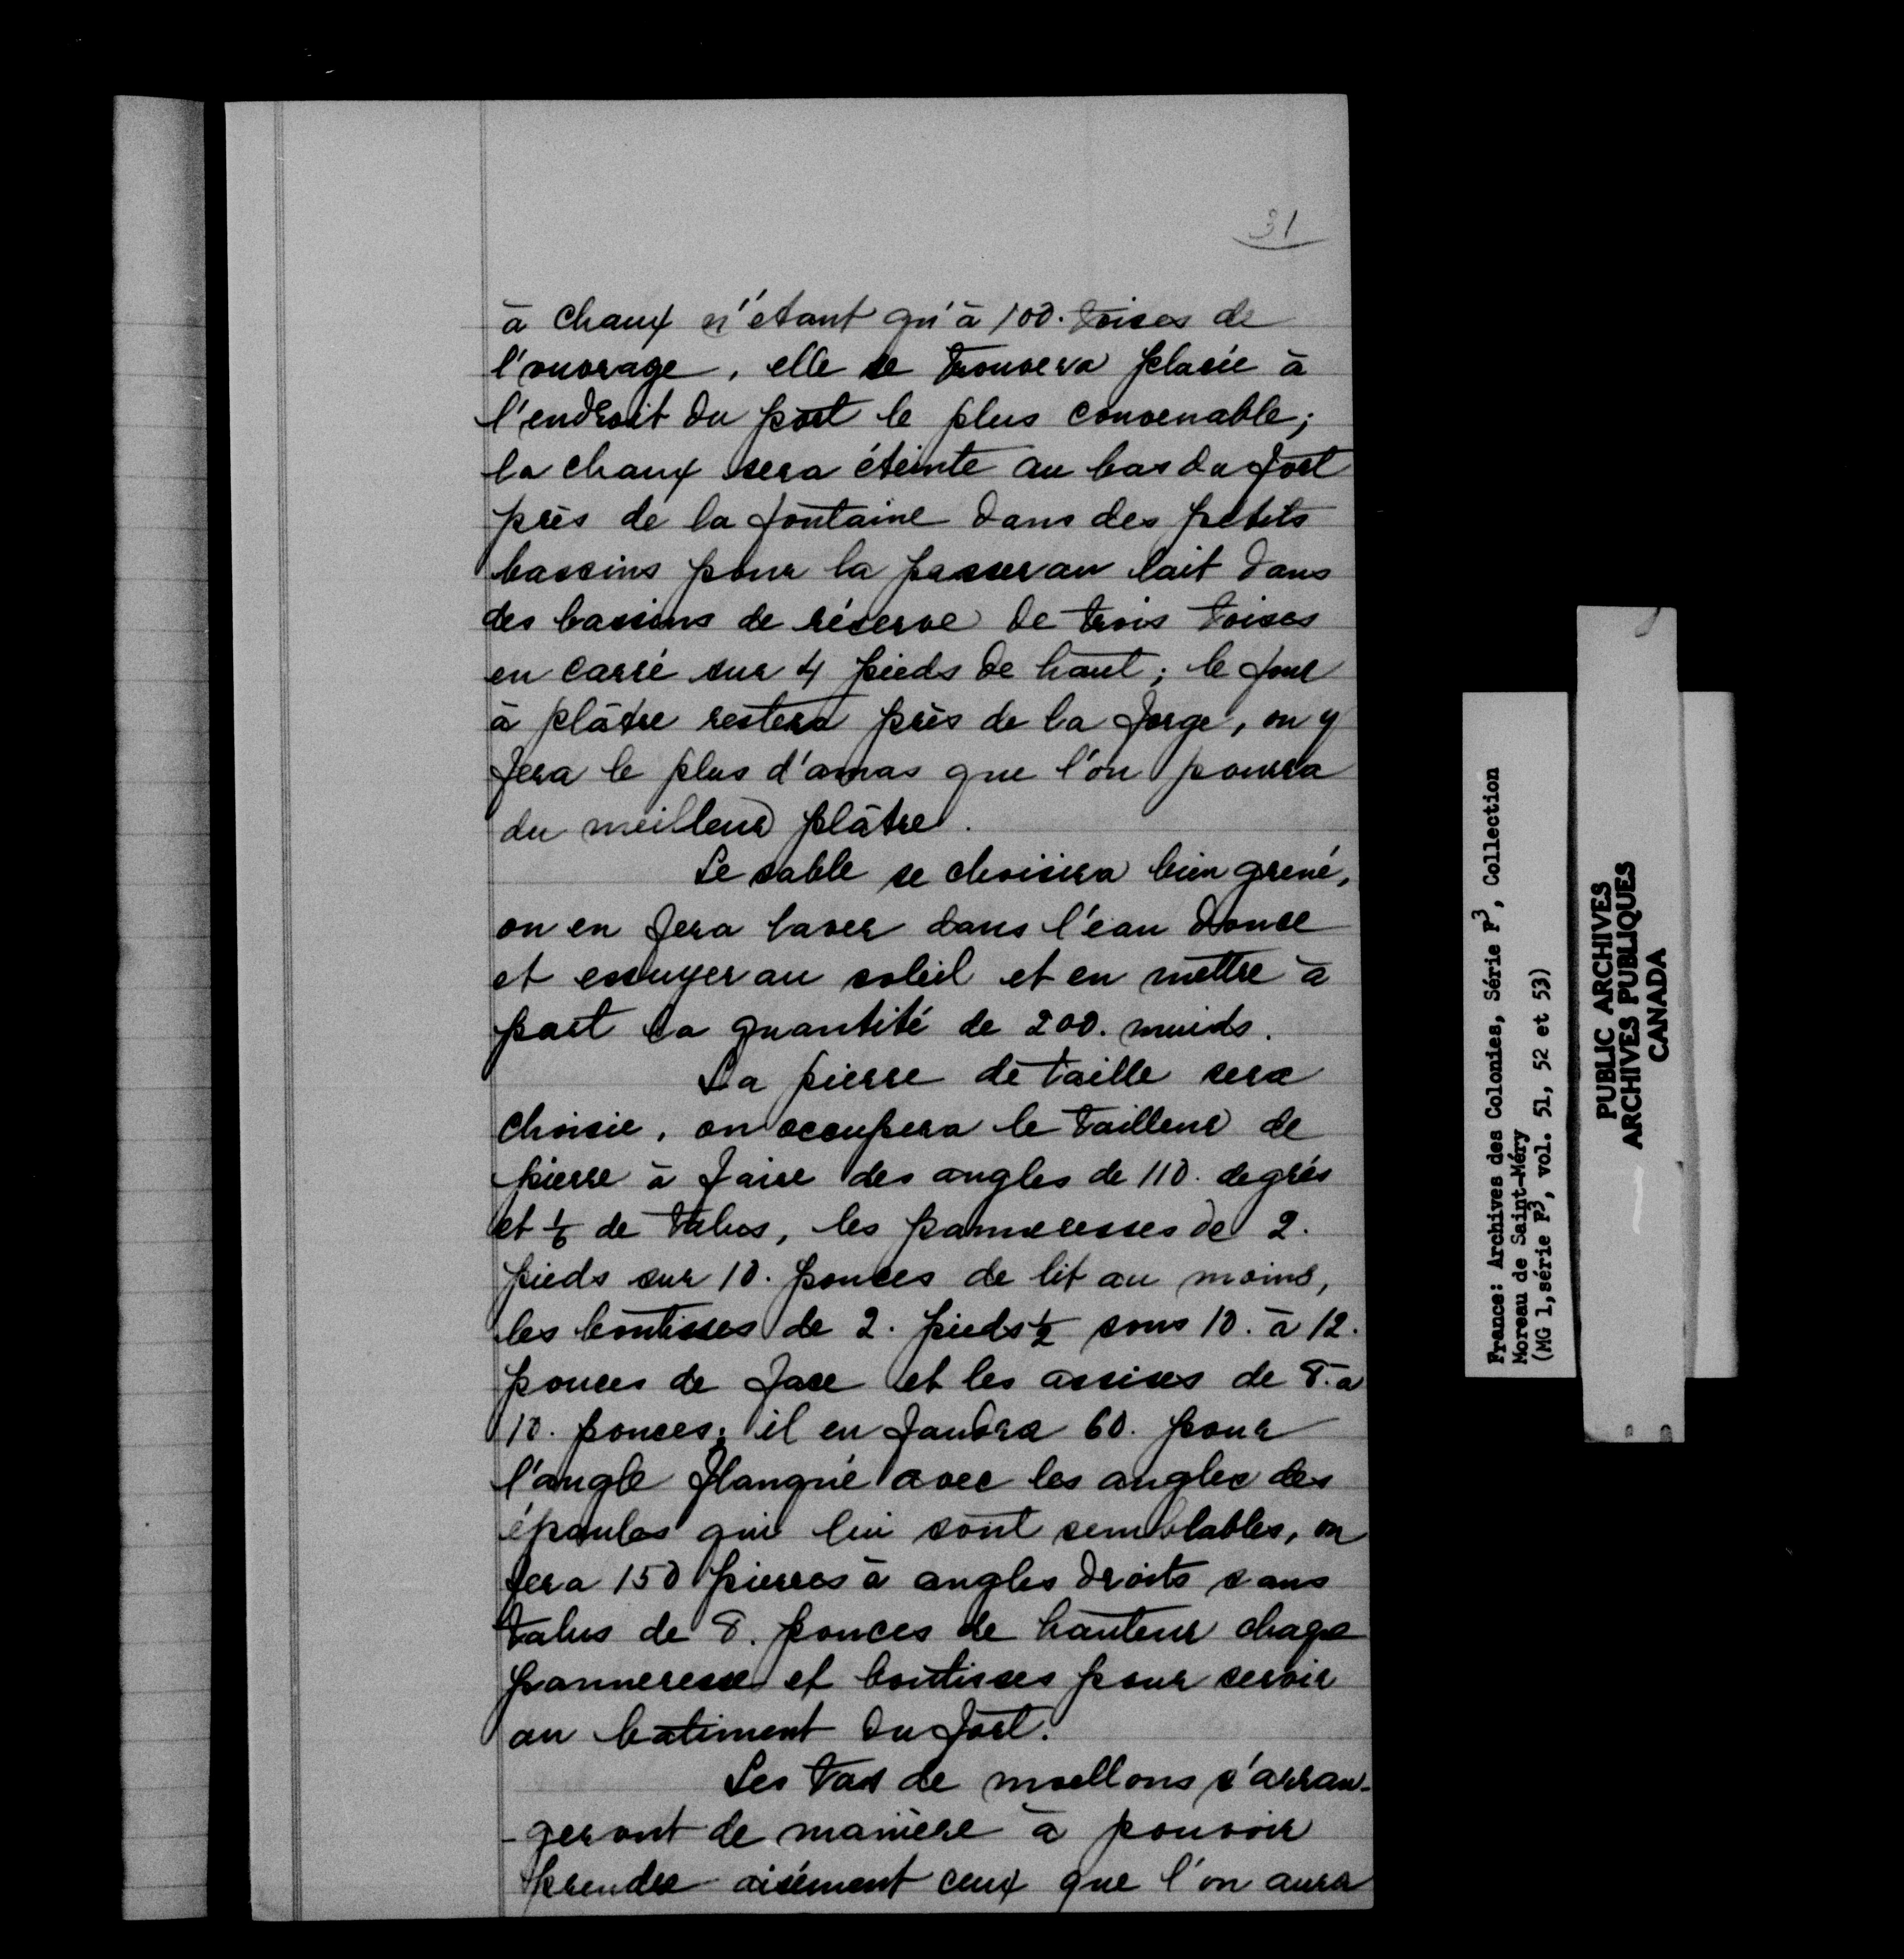 31
à chaux n'étant qu'à 100. toises de
l'ouvrage, elle se trouvera placée à
l'endroit du port le plus convenable;
la chaux sera éteinte au bas du fort
près de la fontaine dans des petits
bassins pour la passer au lait dans
des bassins de réserve de trois toises
en carré sur 4 pieds de haut; le four
à plâtre restera près de la forge, on y
fera le plus d'amas que l'on pourra
du meilleur plâtre.
Le sable se choisira bien grené,
on en fera laver dans l'eau douce
et essuyer au soleil et en mettre à
part la quantité de 200. muids.
La pierre de taille sera
choisie, on occupera le tailleur de
pierre à faire des angles de 110. degrés
et 1/6 de talus, les panneresses de 2.
pieds sur 10. pouces de lit au moins,
les boutisses de 2. pieds 1/2 sous 10. à 12.
pouces de face et les assises de 8. a
10. pouces; il en faudra 60. pour
l'angle flanqué avec les angles des
épaules qui lui sont semblables, on
fera 150 pierres à angles droits sans
talus de 8. pouces de hauteur chaqe
panneresse et boutisses pour servir
au batiment du fort.
Les tas de moellons s'arran-
-geront de manière à pouvoir
prendre aisément ceux que l'on aura
France: Archives des Colonies, Série F3, Collection
Moreau de Saint-Méry
(MG 1, série F3, vol. 51, 52 et 53)
PUBLIC ARCHIVES
ARCHIVES PUBLIQUES
CANADA